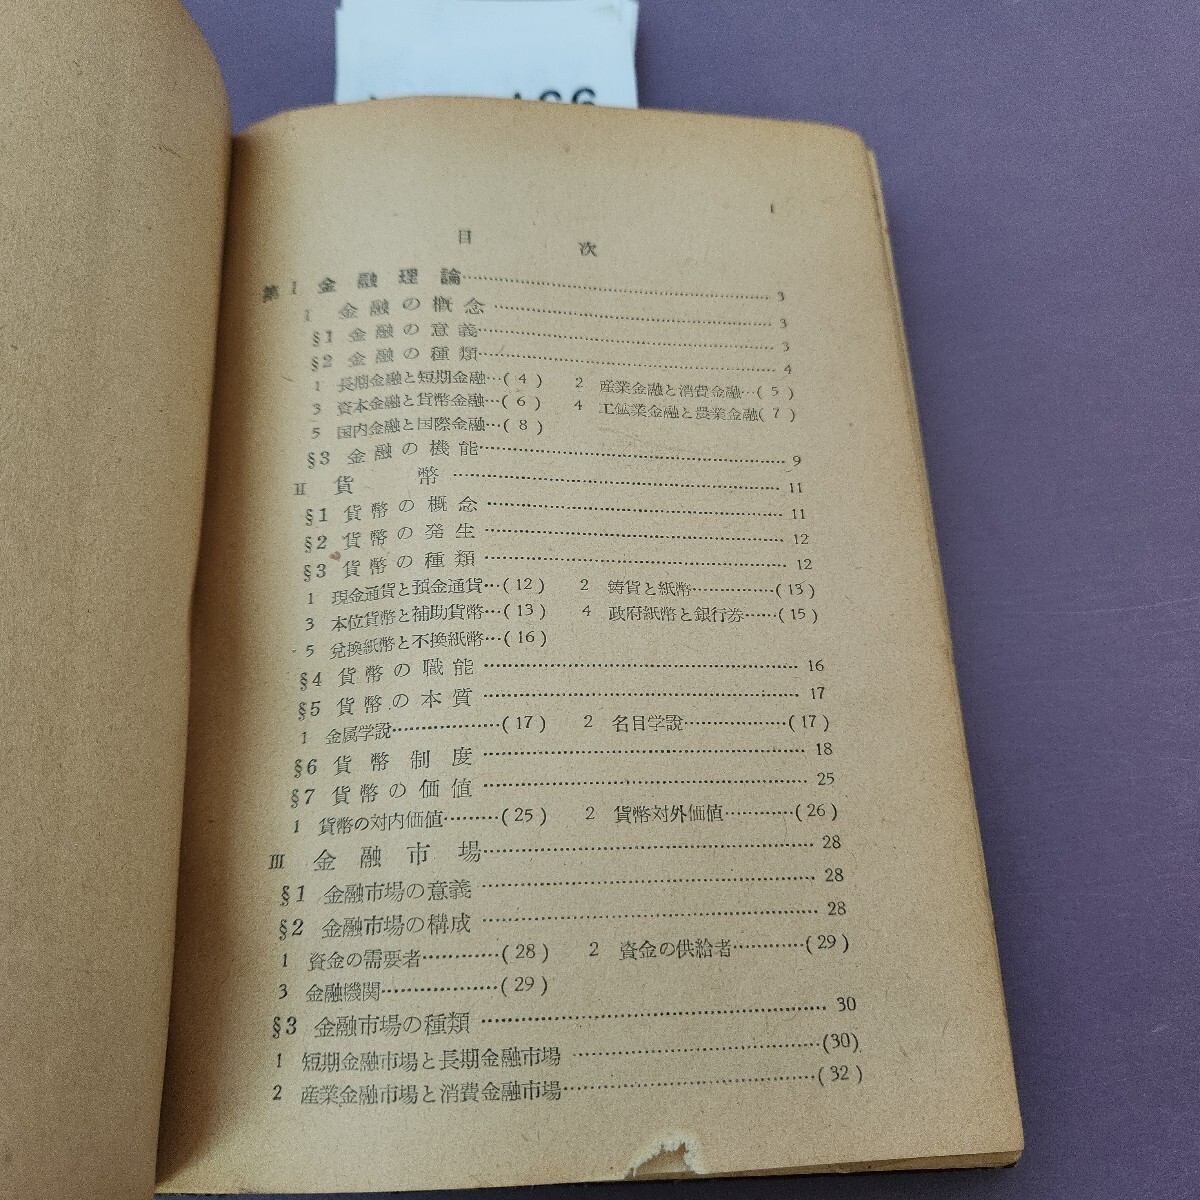 1
目次
第I 金融理論 3
I 金融の概念 3
§1 金融の意義 3
§2 金融の種類 4
1 長期金融と短期金融…(4) 2 産業金融と消費金融…(5)
3 資本金融と貨幣金融…(6) 4 工鉱業金融と農業金融(7)
5 国内金融と国際金融…(8)
§3 金融の機能 9
II 貨幣 11
§1 貨幣の概念 11
§2 貨幣の発生 12
§3 貨幣の種類 12
1 現金通貨と預金通貨…(12) 2 鋳貨と紙幣…(13)
3 本位貨幣と補助貨幣…(13) 4 政府紙幣と銀行券…(15)
5 兌換紙幣と不換紙幣…(16)
§4 貨幣の職能 16
§5 貨幣の本質 17
1 金属学説…(17) 2 名目学説…(17)
§6 貨幣制度 18
§7 貨幣の価値 25
1 貨幣の対内価値…(25) 2 貨幣対外価値…(26)
III 金融市場 28
§1 金融市場の意義 28
§2 金融市場の構成 28
1 資金の需要者…(28) 2 資金の供給者…(29)
3 金融機関…(29)
§3 金融市場の種類 30
1 短期金融市場と長期金融市場…(30)
2 産業金融市場と消費金融市場…(32)